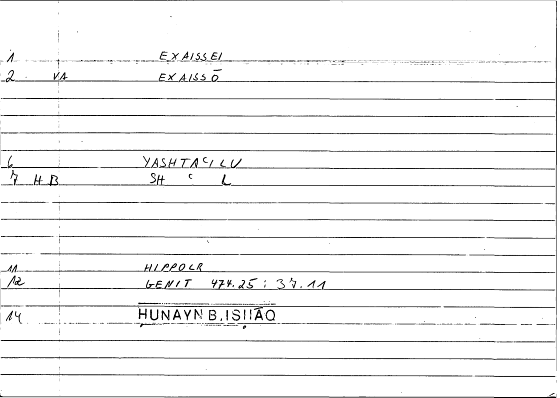 1 EXAISSEI
2 VA EXAISSŌ
6 YASHTAʿILU
7 HB SH ʿ L
11 HIPPOCR
12 GENIT 474.25 : 37.11
14 ḤUNAYN B. ISḤĀQ